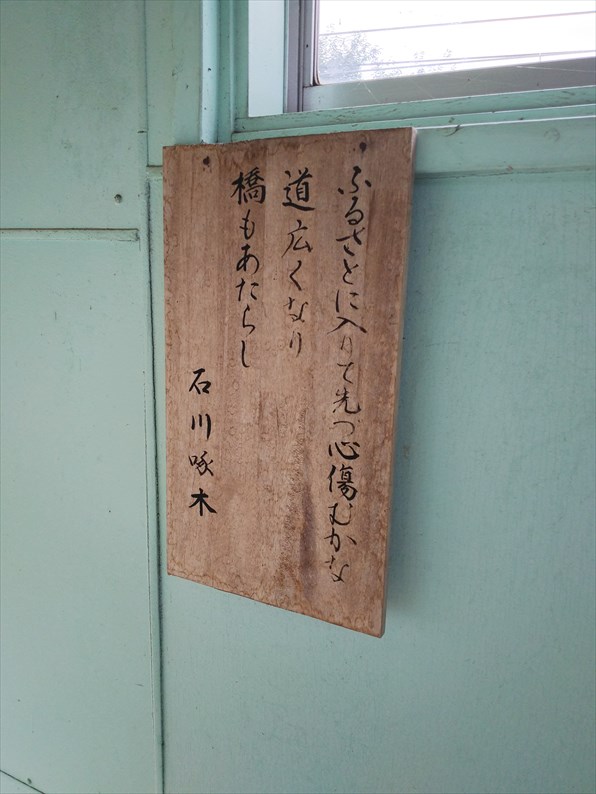 ふるさとに入りて先づ心傷むかな
道広くなり
橋もあたらし
石川啄木